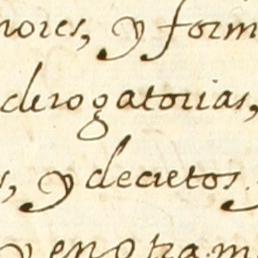 nores, y form
derogatorias,
s, y decretos.
y en otra m